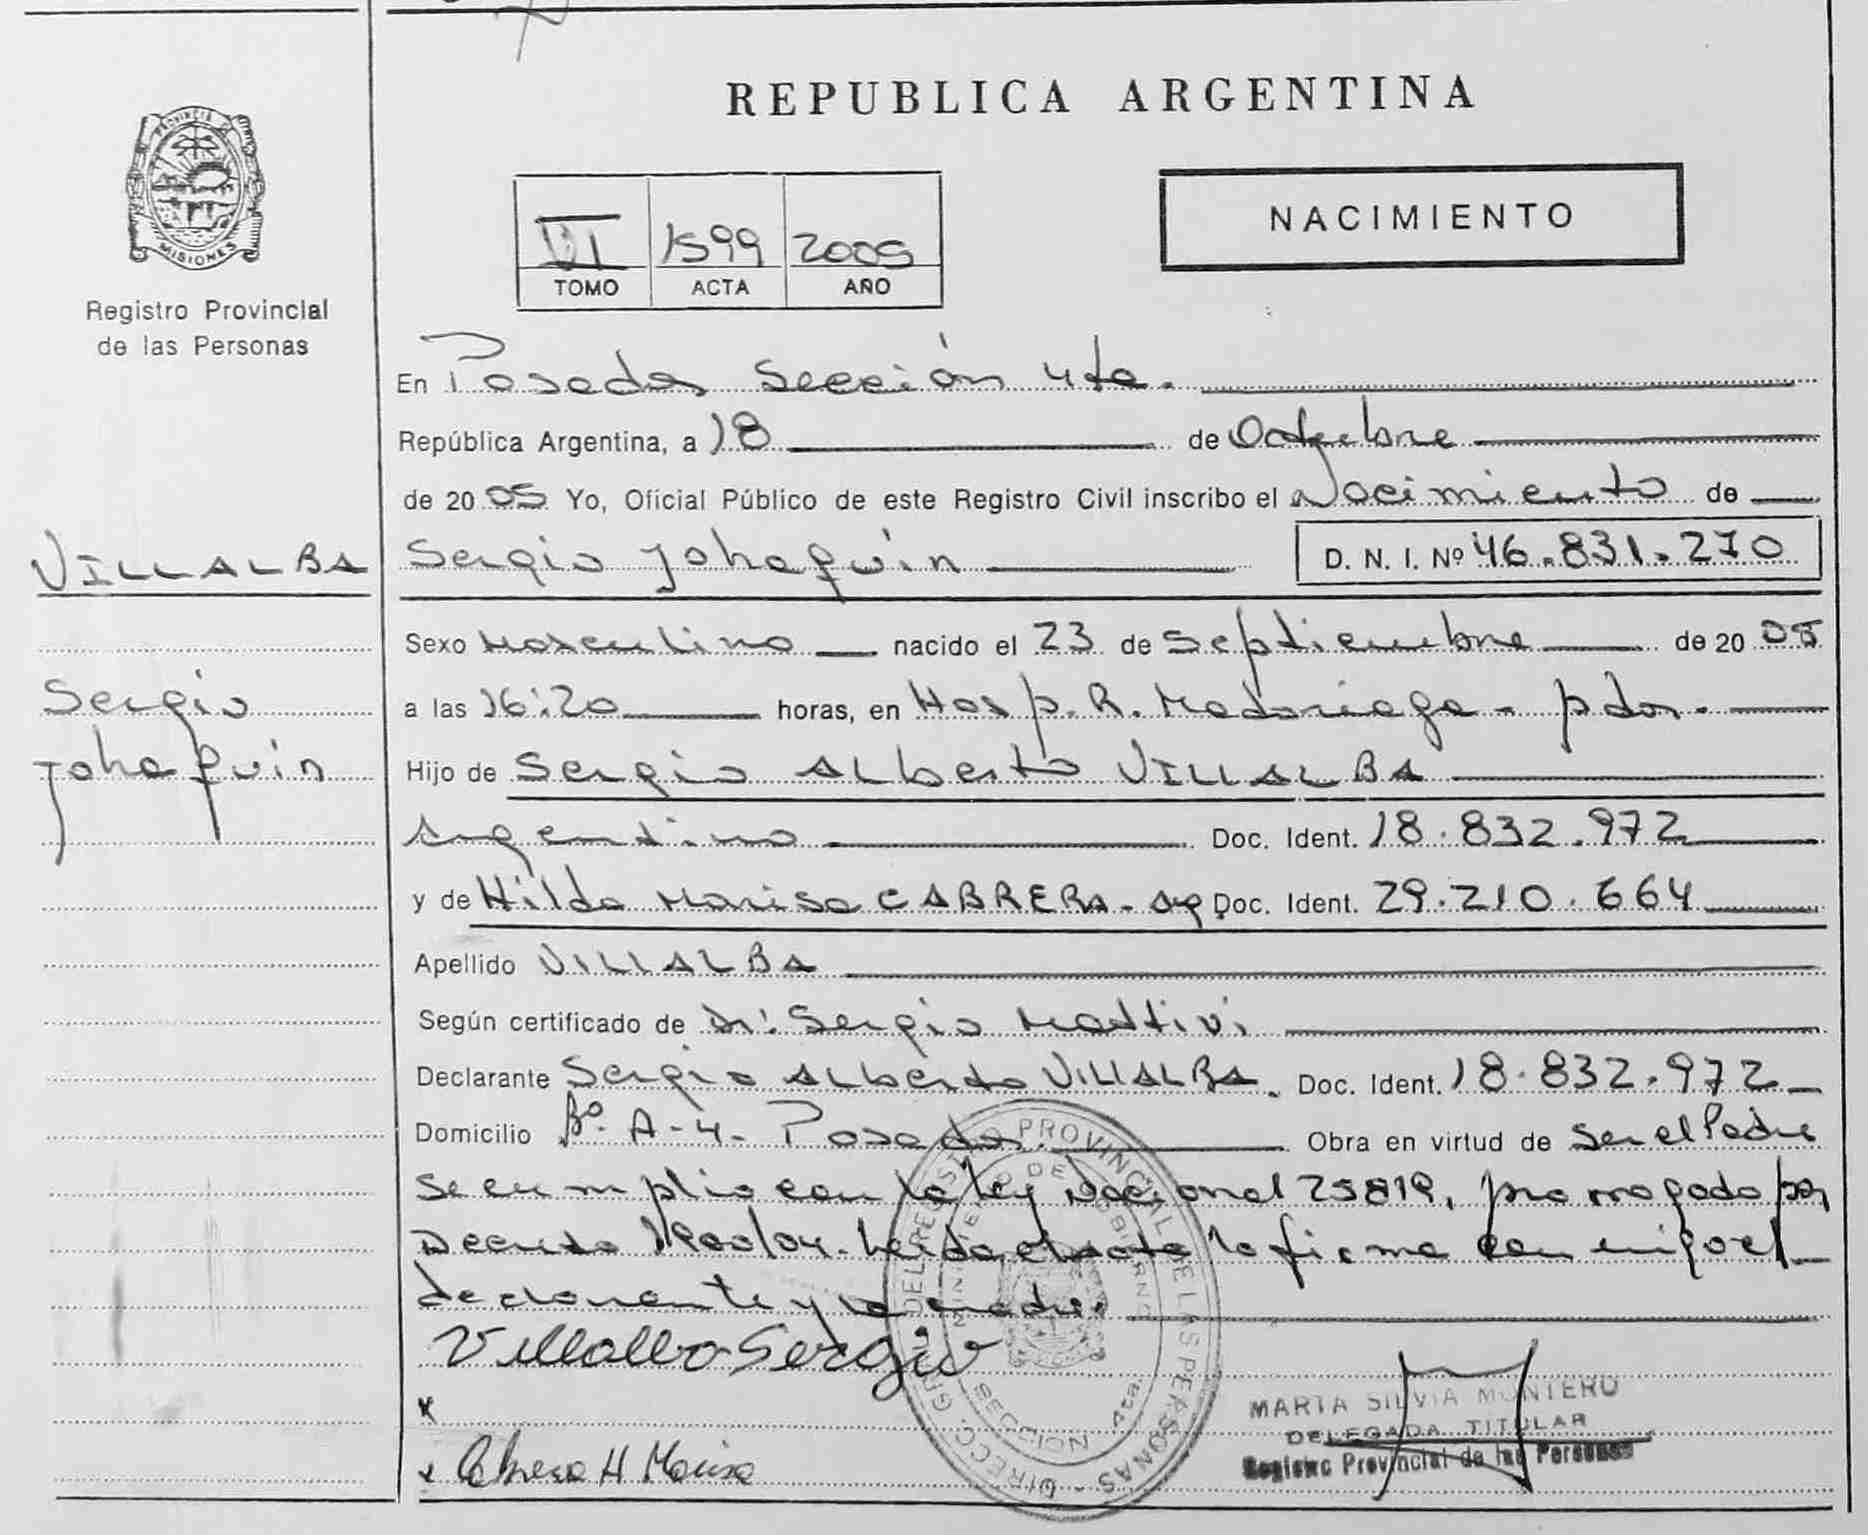 REPUBLICA ARGENTINA
PROVINCIA DE MISIONES
Registro Provincial
de las Personas
VI 1599 2005
TOMO ACTA AÑO
NACIMIENTO
En Posadas Sección 4ta.
República Argentina, a 18 de Octubre
de 2005 Yo, Oficial Público de este Registro Civil inscribo el Nacimiento de
VILLALBA
Sergio Johaquin
Sergio Johaquin D. N. I. Nº 46.831.270
Sexo Masculino nacido el 23 de Septiembre de 2005
a las 16:20 horas, en Hosp. R. Madariaga - pdas.
Hijo de Sergio Alberto VILLALBA
argentino Doc. Ident. 18.832.972
y de Hilda Marisa CABRERA - arg Doc. Ident. 29.210.664
Apellido VILLALBA
Según certificado de Dr. Sergio Mattivi
Declarante Sergio Alberto VILLALBA. Doc. Ident. 18.832.972
Domicilio Bº. A-4- Posadas. Obra en virtud de ser el Padre
se cumplio con la ley Nacional 25819, prorrogado por
Decreto /04. Leida el acta la firma con migo el
declarante y la madre.
Villalba Sergio
x
x Cabrera H Marisa
DIRECC. GRAL. DEL REGISTRO PROVINCIAL DE LAS PERSONAS
MINISTERIO DE GOBIERNO
SECCION 4ta.
MARTA SILVIA MONTERO
DELEGADA TITULAR
Registro Provincial de las Personas